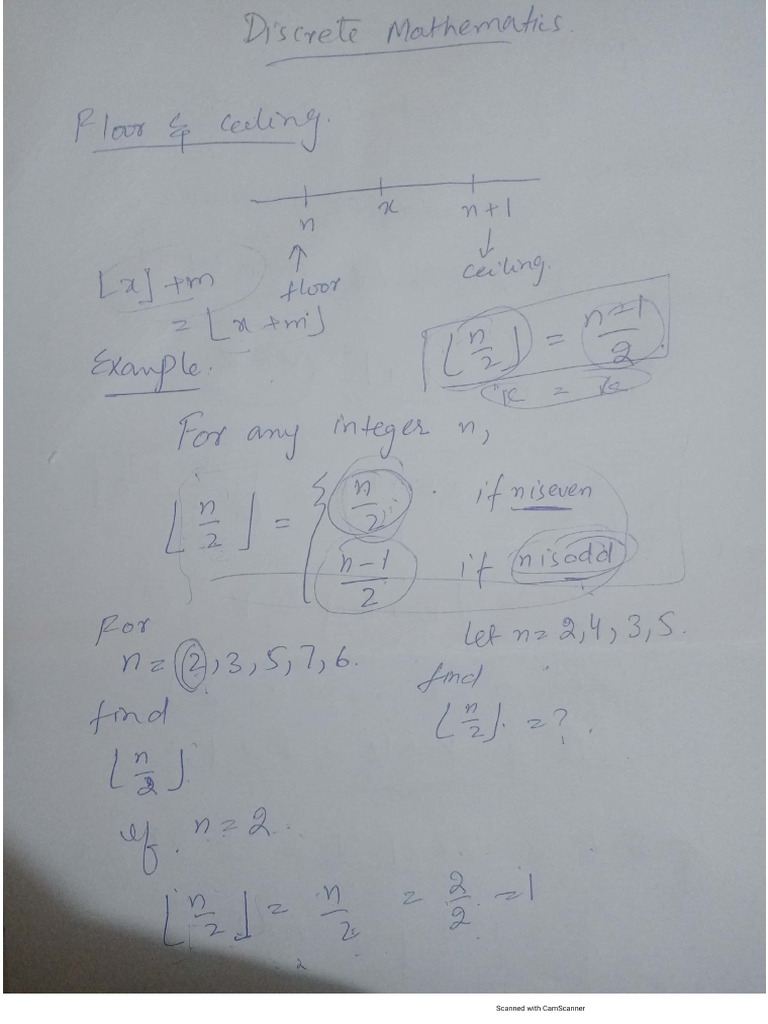 Discrete Mathematics.
Floor & ceiling.
n x n+1
↑ ↓
floor ceiling.
⌊x⌋ + m
= ⌊x + m⌋
⌊n/2⌋ = (n-1)/2
k = k
Example.
For any integer n,
⌊n/2⌋ = { n/2 . if n is even
(n-1)/2 if n is odd
For
n = 2, 3, 5, 7, 6.
find
⌊n/2⌋
Let n = 2, 4, 3, 5.
find
⌊n/2⌋. = ?.
if. n = 2.
⌊n/2⌋ = n/2 = 2/2 = 1
Scanned with CamScanner